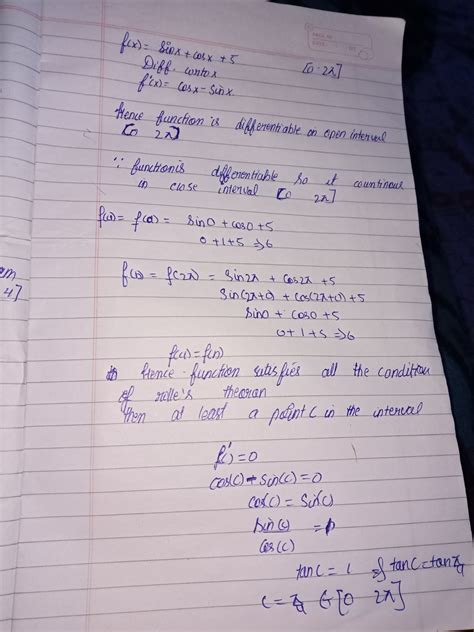 f(x) = sinx + cosx + 5
[0 2π]
Diff. w.r.to x
f'(x) = cosx - sinx
Hence function is differentiable on open interval
[0 2π]
∵ function is differentiable so it countineous
in close interval [0 2π]
f(a) = f(0) = sin0 + cos0 + 5
0 + 1 + 5 ⇒ 6
em
4]
f(b) = f(2π) = sin2π + cos2π + 5
sin(2π+0) + cos(2π+0) + 5
sin0 + cos0 + 5
0 + 1 + 5 ⇒ 6
f(a) = f(b)
Hence function satisfies all the condition
of rolle's theoram
then at least a point C in the interval
f'( ) = 0
cos(c) - sin(c) = 0
cos(c) = sin(c)
sin(c) = 1
cos(c)
tanc = 1 tanc = tanπ/4
c = π/4 ∈ [0 2π]